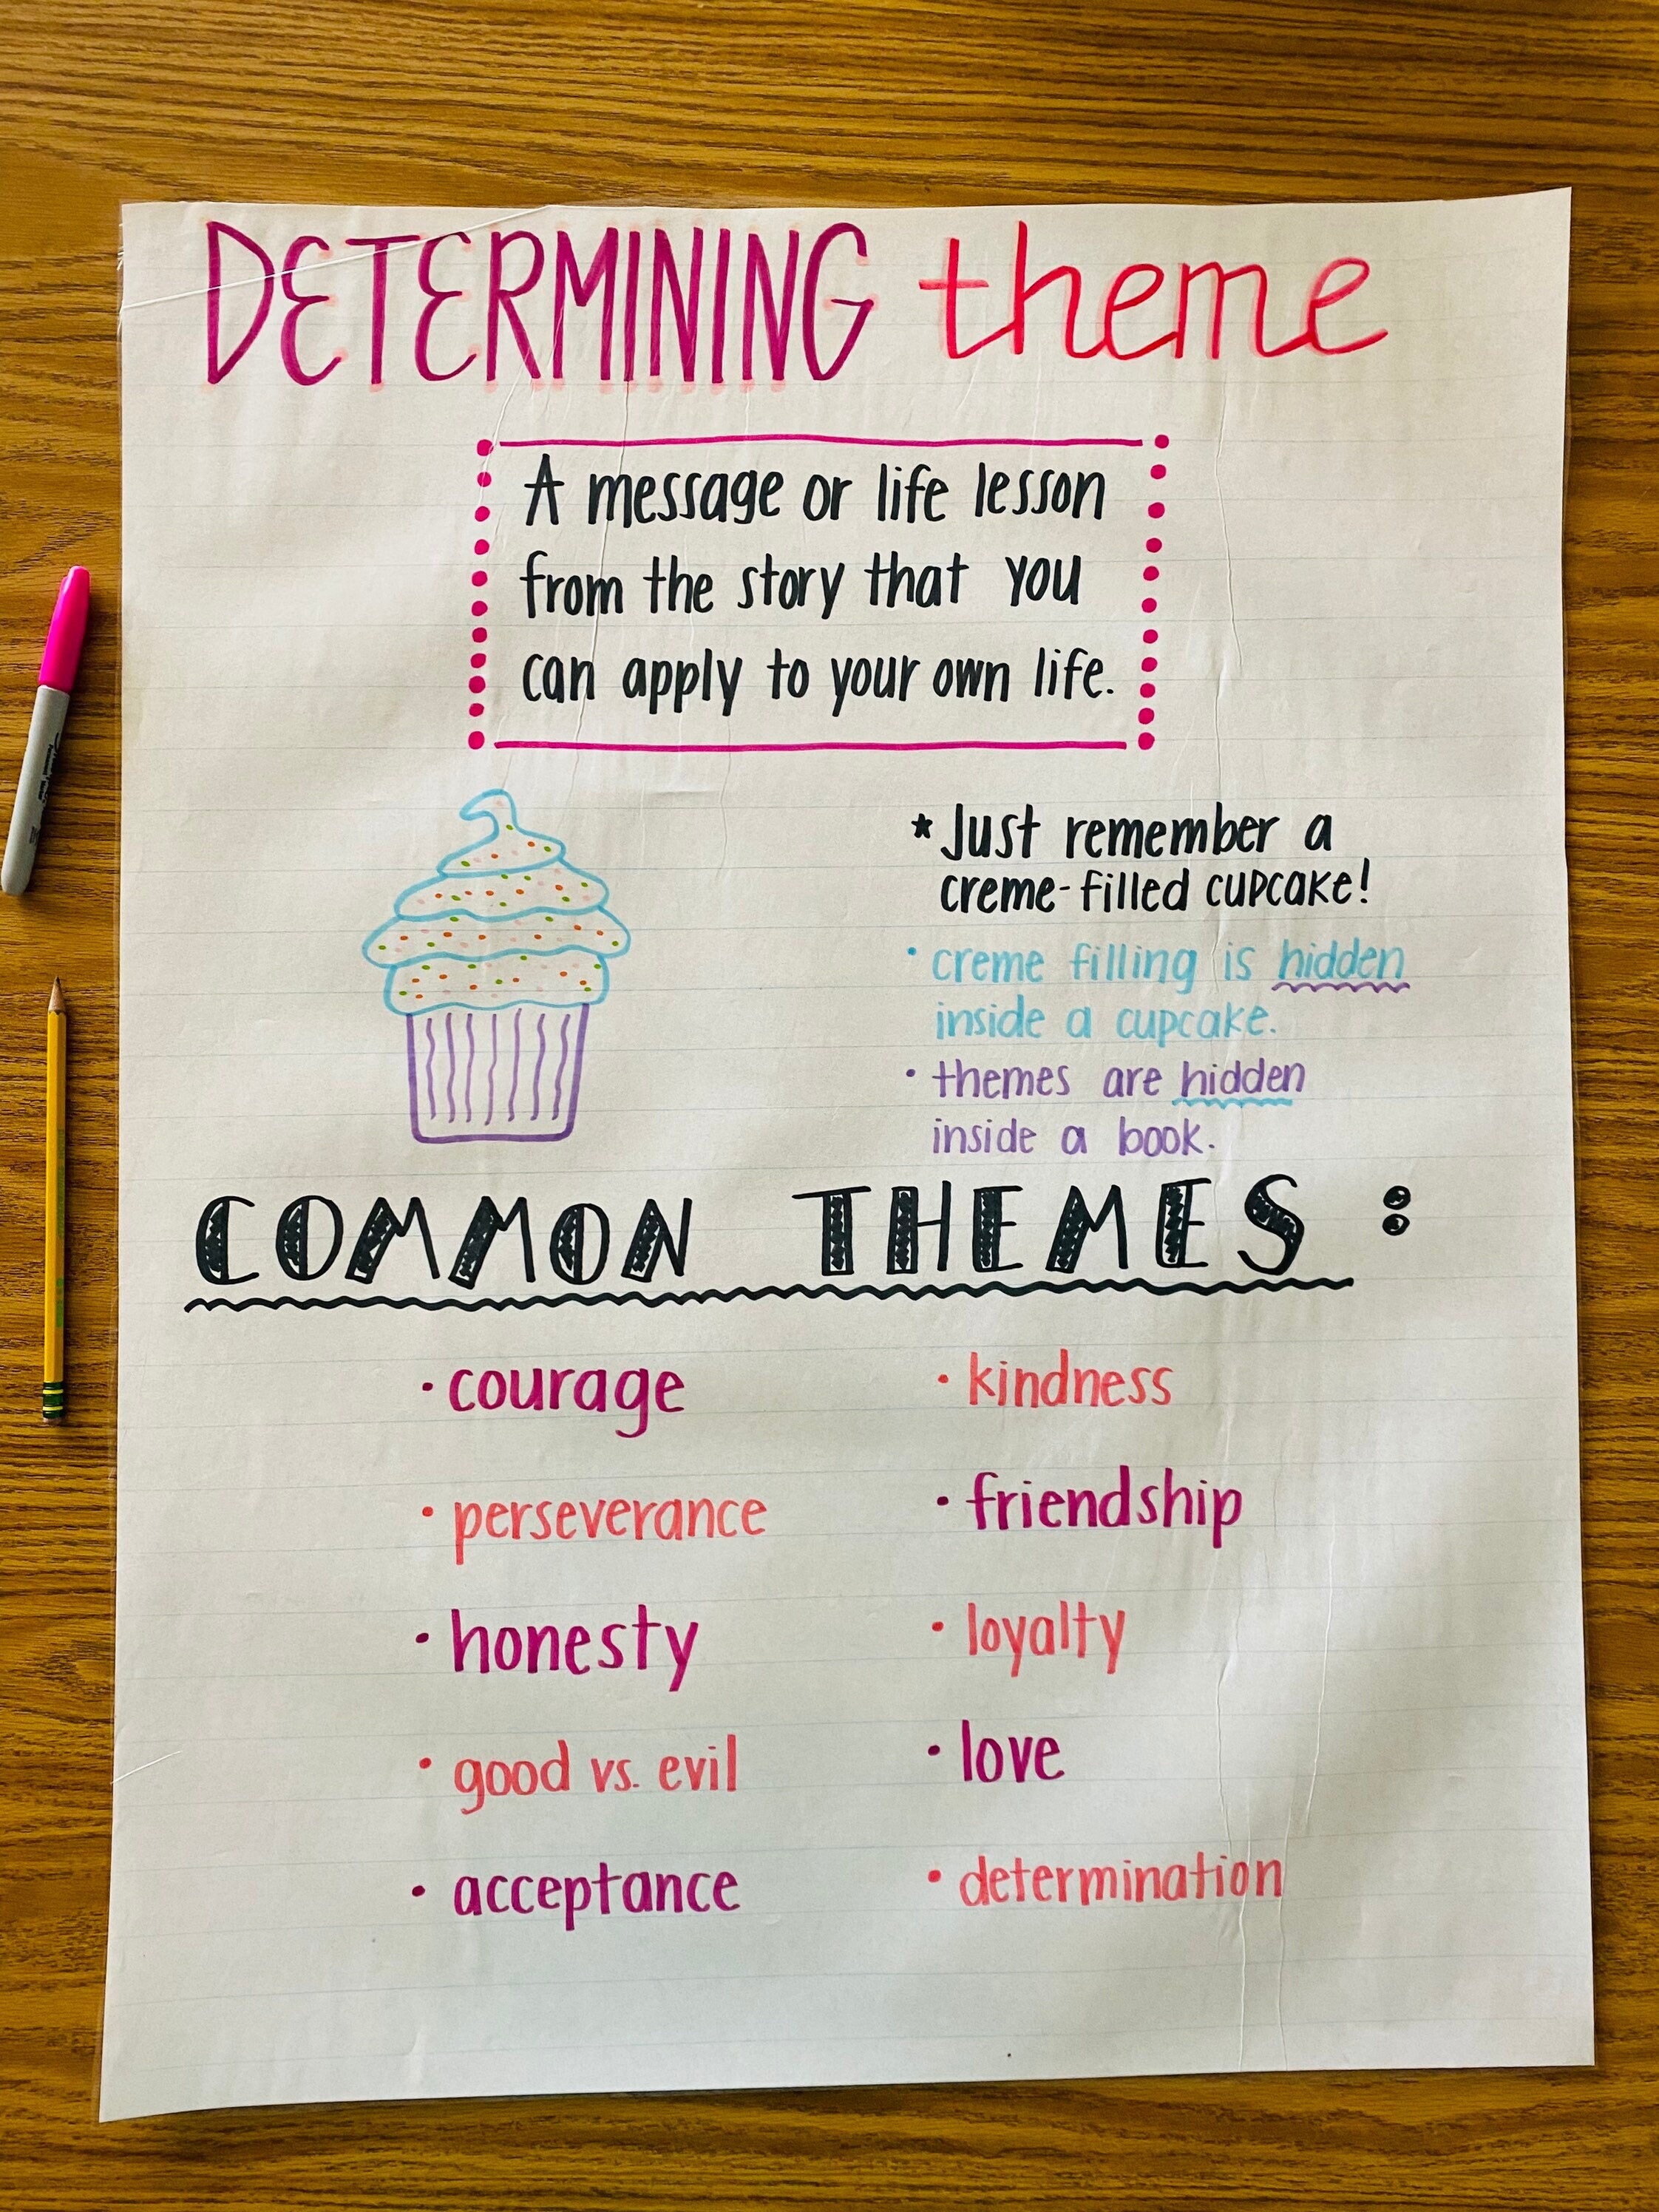 DETERMINING theme
A message or life lesson
from the story that you
can apply to your own life.
* Just remember a
creme-filled cupcake!
• creme filling is hidden
inside a cupcake.
• themes are hidden
inside a book.
COMMON THEMES:
• courage
• kindness
• perseverance
• friendship
• honesty
• loyalty
• good vs. evil
• love
• acceptance
• determination